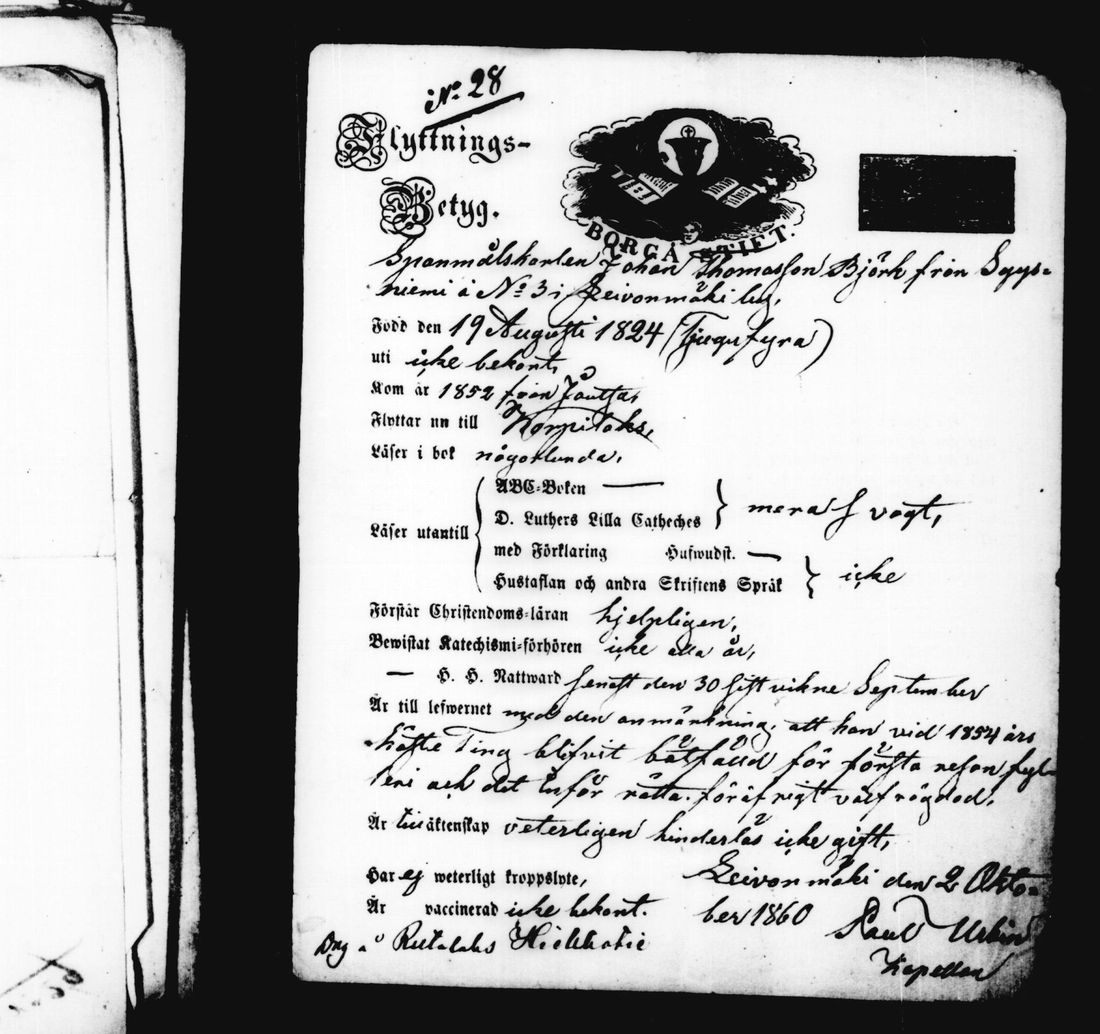 No 28
Flyttnings-
Betyg.
BORGÅ STIFT.
Spanmålskarlen Johan Thomasson Björk från Syys-
niemi å No 3 i Leivonmäki
Född den 19 Augusti 1824 (Tjugufyra)
uti icke bekant,
Kom år 1852 från Joutsa,
Flyttar nu till Korpilaks,
Läser i bok någorlunda,
Läser utantill
ABC-Boken —
D. Luthers Lilla Catheches
mera svagt,
med Förklaring Hufwudst. —
Hustaflan och andra Skriftens Språk
icke
Förstår Christendoms-läran hjelpligen,
Bewistat Katechismi-förhören icke alla år,
— H. H. Nattward senast den 30 sistvikne September
Är till lefwernet med den anmärkning, att han vid 1854 års
Höste Ting blifvit bötfälld för första resan fyl-
leri och det inför rätta. föröfrigt välfrägdad.
Är till äktenskap veterligen hinderlös icke gift,
Har ej weterligt kroppslyte,
Leivonmäki den 2 Okto-
Är vaccinerad icke bekant.
ber 1860
Paul
Kapellan
Drg å Rutalaks